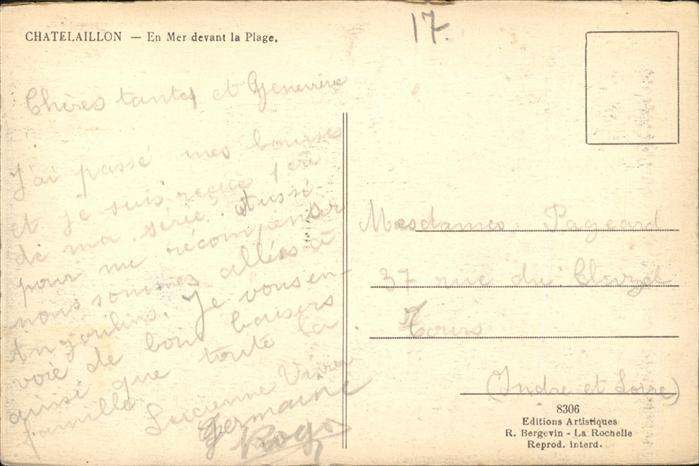 CHATELAILLON — En Mer devant la Plage.
17.
Chères tantes et Geneviève
J'ai passé mes bourse
et je suis reçue 1ère
de ma série. Aussi
pour me récompenser
nous sommes allés à
Je vous en-
voie de bons baisers
ainsi que toute la
famille.
Lucienne
Germaine
Mesdames Pageard
37 rue du
Tours
(Indre et Loire)
8306
Editions Artistiques
R. Bergevin - La Rochelle
Reprod. Interd.